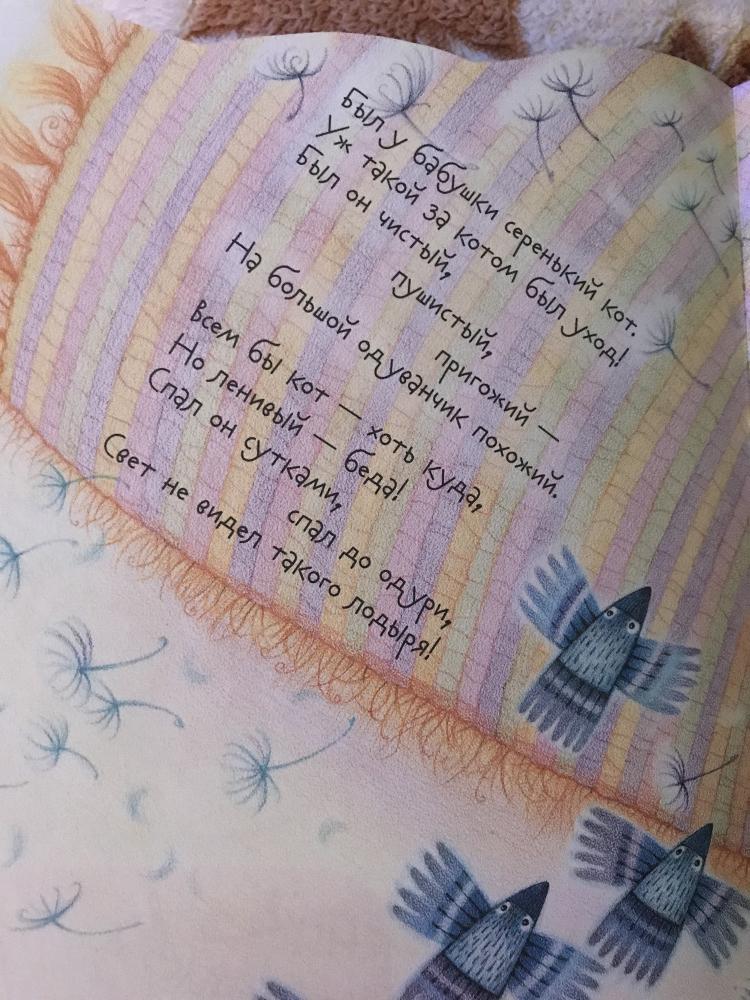 Был у бабушки серенький кот.
Уж такой за котом был уход!
Был он чистый,
пушистый,
пригожий —
На большой одуванчик похожий.
Всем бы кот — хоть куда,
Но ленивый — беда!
Спал он сутками,
спал до одури,
Свет не видел такого лодыря!